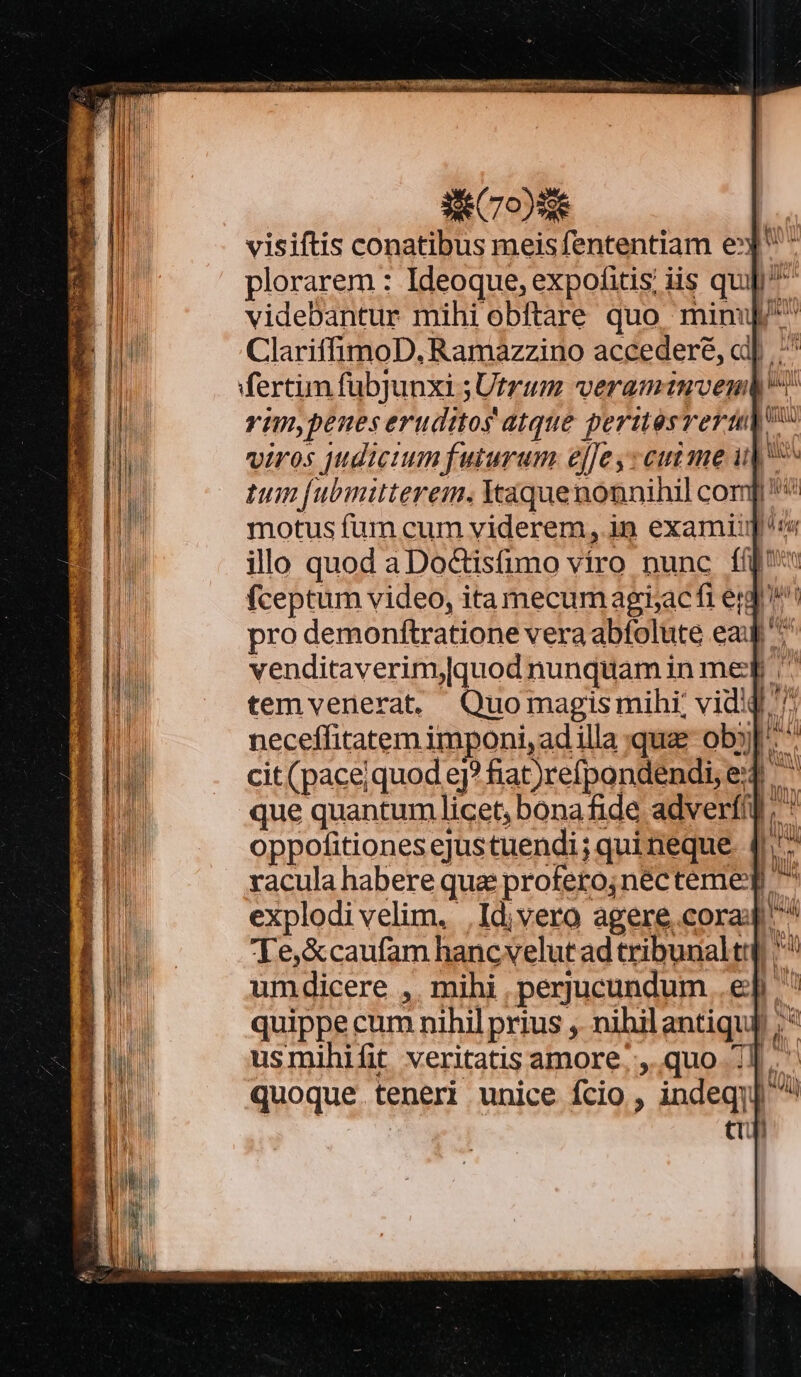 (70)
visiſtis conatibus meis ſententiam ex
plorarem : Ideoque, expoſitis iis qu
videbantur mihi obſtare quo minu
Clariſſimo D. Ramazzino accederē, d
ſertim ſubjunxi ; Utrum vera minveni
rim, penes eruditos atque peritos reru
viros judicium futurum eſſe, cui me u
tum ſubmitterem. Itaque nonnihil com
motus ſum cum viderem, in exami
illo quod a Doctisſimo viro nunc ſ
ſceptum video, ita mecum agi, ac ſi e
pro demonſtratione vera abſolute ea
venditaverim, quod nunquam in me
tem venerat. Quo magis mihi vid
neceſſitatem imponi, ad illa quæ ob
cit (pace quod ejꝰ fiat) reſpondendi, e
que quantum licet, bona fide adverſ
oppoſitiones ejus tuendi ; qui neque
racula habere quæ profero; nec teme
explodi velim. Id vero agere cora
Te, & cauſam hanc velut ad tribunal t
um dicere , mihi perjucundum e
quippe cum nihil prius , nihil antiqu
us mihi ſit veritatis amore , quo
quoque teneri unice ſcio , indeq
tu